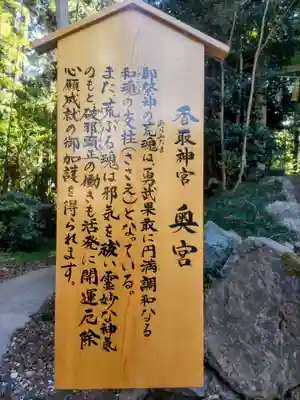 香取神宮 奥宮
御祭神の荒魂は、勇武果敢に円満調和なる
あらみたま
和魂の支柱(ささえ)となっている。
また荒ぶる魂は邪気を祓い霊妙な神氣
のもと破邪顕正の働きも活発に開運厄除
心願成就の御加護を得られます。